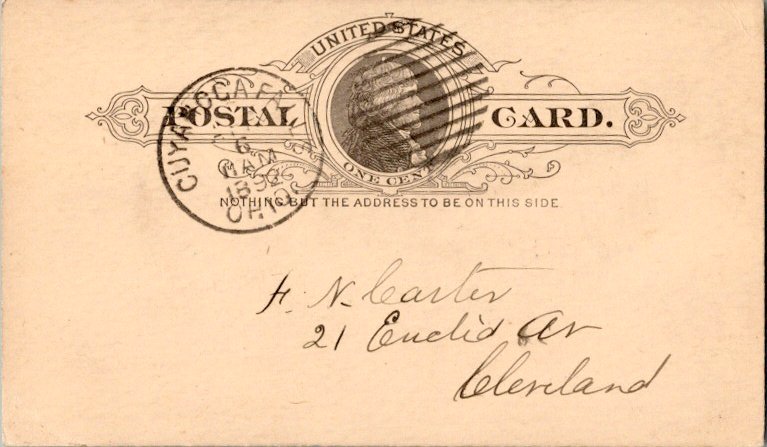 UNITED STATES
POSTAL CARD.
ONE CENT
NOTHING BUT THE ADDRESS TO BE ON THIS SIDE.
CUYAHOGA FALLS
6
AM
1892
OHIO
F. N. Carter
21 Euclid Av
Cleveland